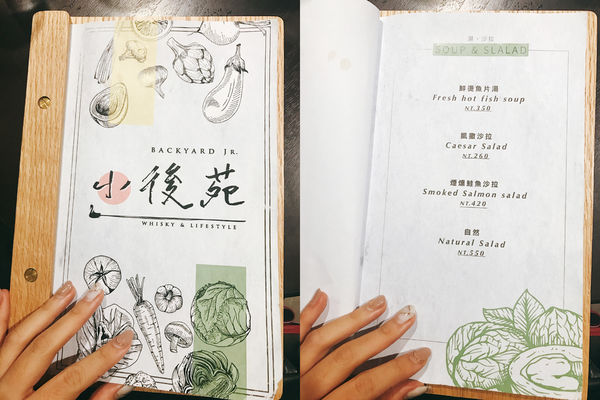 BACKYARD JR.
小後苑
WHISKY & LIFESTYLE
湯・沙拉
SOUP & SLALAD
鮮燙魚片湯
Fresh hot fish soup
NT.350
凱撒沙拉
Caesar Salad
NT.260
煙燻鮭魚沙拉
Smoked Salmon salad
NT.420
自然
Natural Salad
NT.550